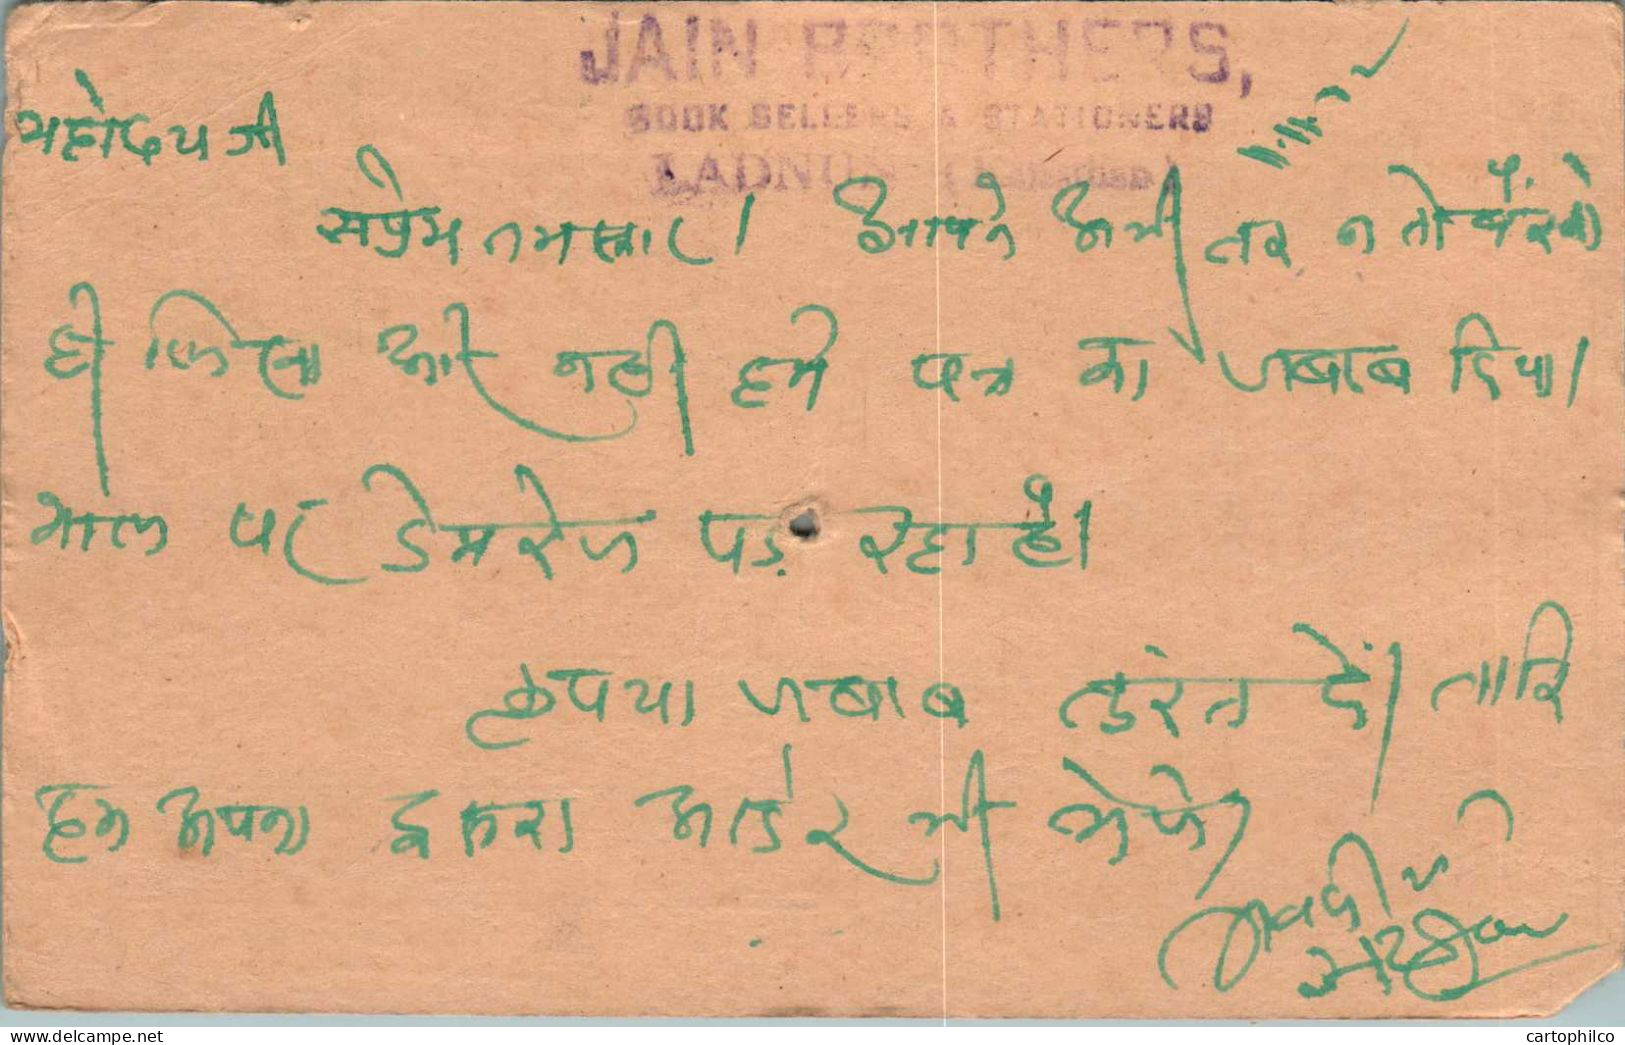 JAIN BROTHERS,
BOOK SELLERS & STATIONERS
LADNUN (Rajasthan)
महोदय जी
सप्रेम नमस्कार। आपने अभी तक न तो बैंक को
ही लिखा और नही हमे पत्र का जबाब दिया।
माल पर डेमरेज पड़ रहा है।
कृपया जबाब तुरंत दें। ताकि
हम अपना दुसरा आर्डर भी भेजे।
cartophilco